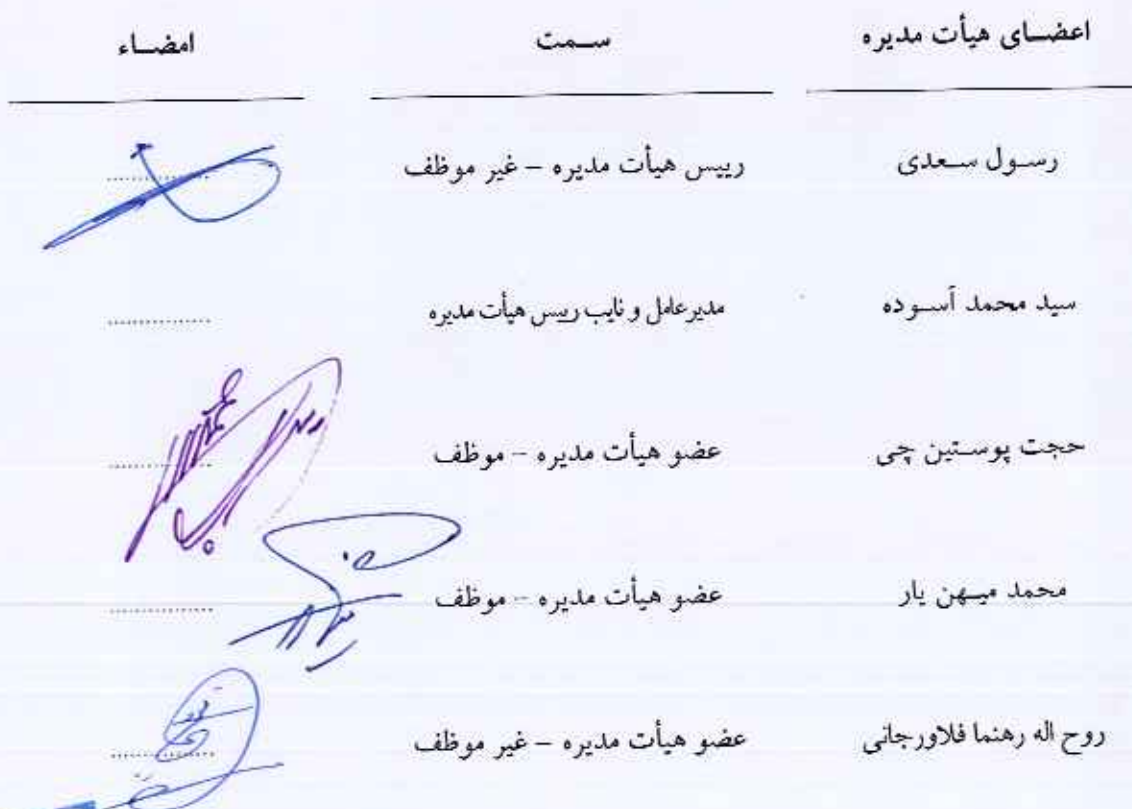 اعضای هیأت مدیره سمت امضاء
رسول سعدی رییس هیأت مدیره – غیر موظف
سید محمد آسوده مدیرعامل و نایب رییس هیأت مدیره
حجت پوستین چی عضو هیأت مدیره – موظف
محمد میهن یار عضو هیأت مدیره – موظف
روح اله رهنما فلاورجانی عضو هیأت مدیره – غیر موظف